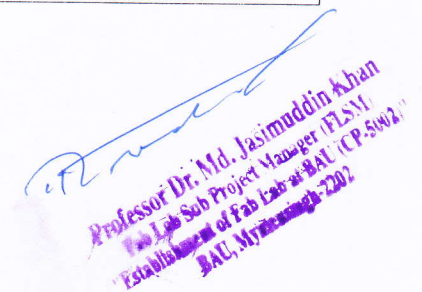 Professor Dr. Md. Jasimuddin Khan
Fab Lab Sub Project Manager (FLSM)
"Establishment of Fab Lab at BAU (CP-5002)"
BAU, Mymensingh-2202